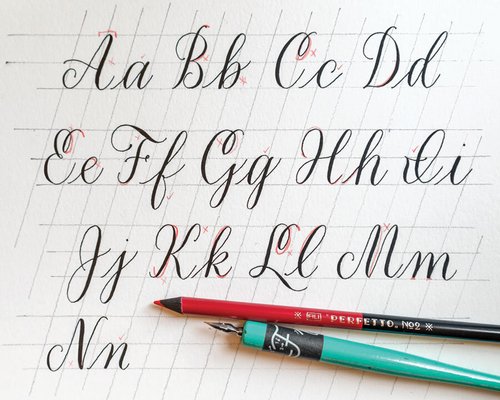 Aa Bb Cc Dd
Ee Ff Gg Hh Ii
Jj Kk Ll Mm
PERFETTO. No2
Nn